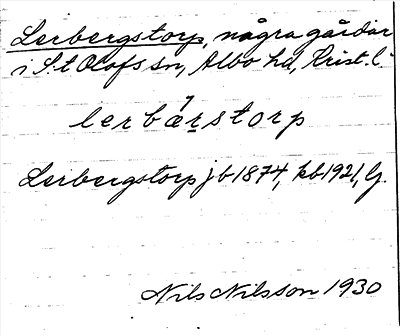 Lerbergstorp, några gårdar
i S:t Olofs sn, Albo hd, Krist. l.
lerbæ̀rstorp
Lerbergstorp jb 1874, kb 1921, G.
Nils Nilsson 1930